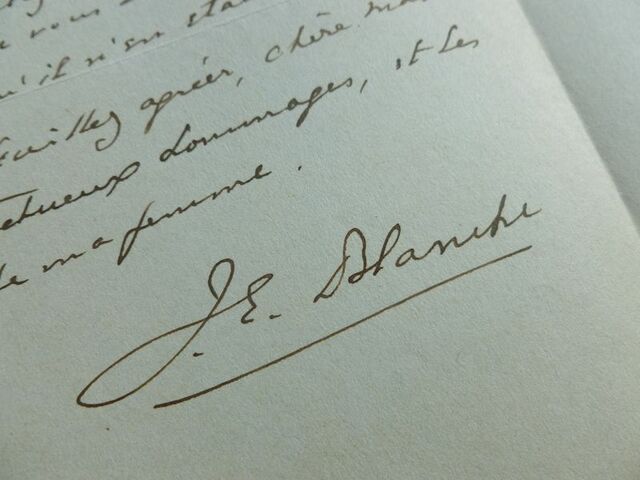 vous
qu'il n'en était
Veuillez agréer, chère ma
ctueux hommages, et les
de ma femme.
J. E. Blanche